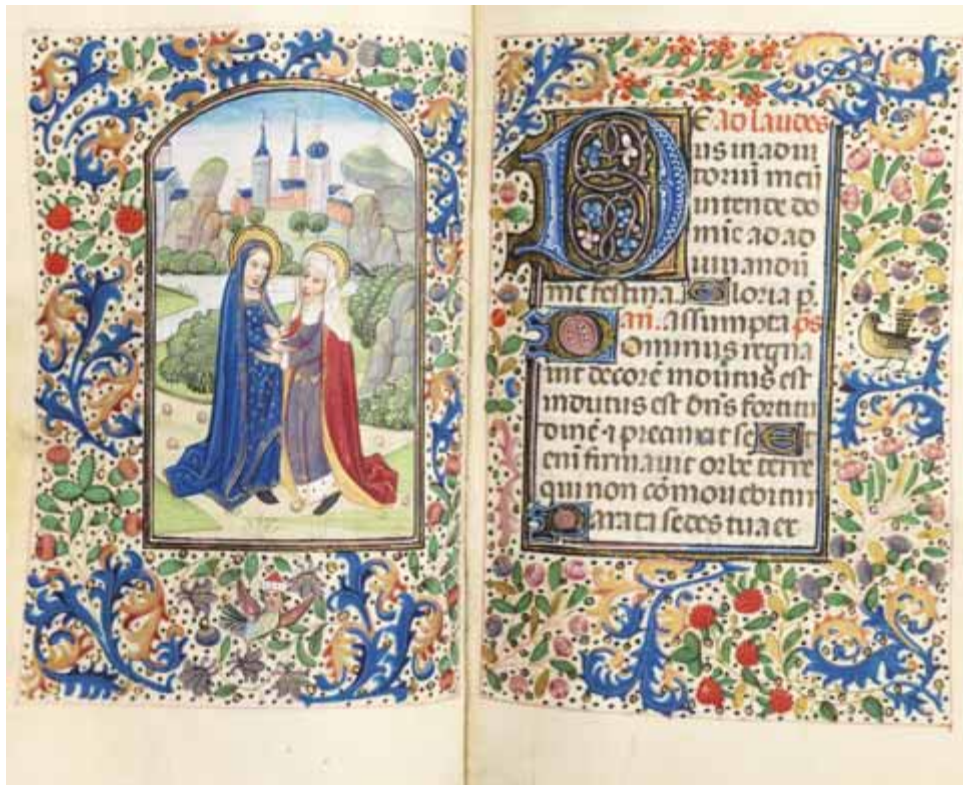 DE ad laudes
us in adiu
toriũ meũ
intende do
mīe ad ad
iuuandū
me festina. Gloria p̄.
an. assumpta ps
Dominus regna
uit decorē indutus est
indutus est dn̄s fortitu
dinē ⁊ precinxit se Et
eni firmauit orbē terre
qui non cōmouebitur
Parata sedes tua ex